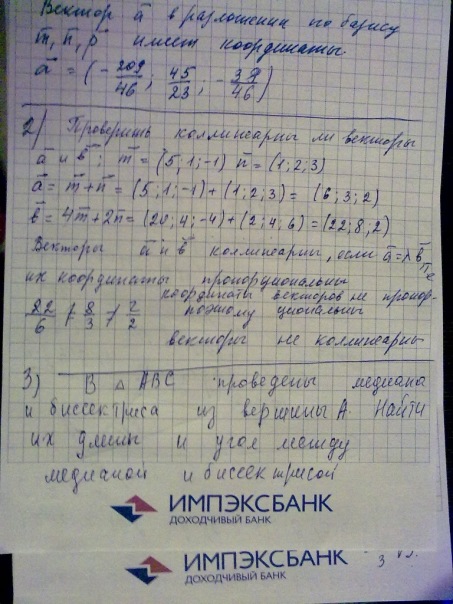 Вектор a⃗ в разложении по базису
m⃗, n⃗, p⃗ имеет координаты.
a⃗ = (-209/46; 45/23; -39/46)
2) Проверить коллинеарны ли векторы
a⃗ и b⃗; m⃗ = (5; 1; -1) n⃗ = (1; 2; 3)
a⃗ = m⃗ + n⃗ = (5; 1; -1) + (1; 2; 3) = (6; 3; 2)
b⃗ = 4m⃗ + 2n⃗ = (20; 4; -4) + (2; 4; 6) = (22; 8, 2)
Векторы a⃗ и b⃗ коллинеарны, если a⃗ = λb⃗
их координаты пропорциональны
22/6 ≠ 8/3 ≠ 2/2
координаты векторов не пропор-
циональны
поэтому
векторы не коллинеарны
3) В △ ABC проведены медиана
и биссектриса из вершины A. Найти
их длины и угол между
медианой и биссектрисой
ИМПЭКСБАНК
ДОХОДЧИВЫЙ БАНК
ИМПЭКСБАНК
ДОХОДЧИВЫЙ БАНК
3